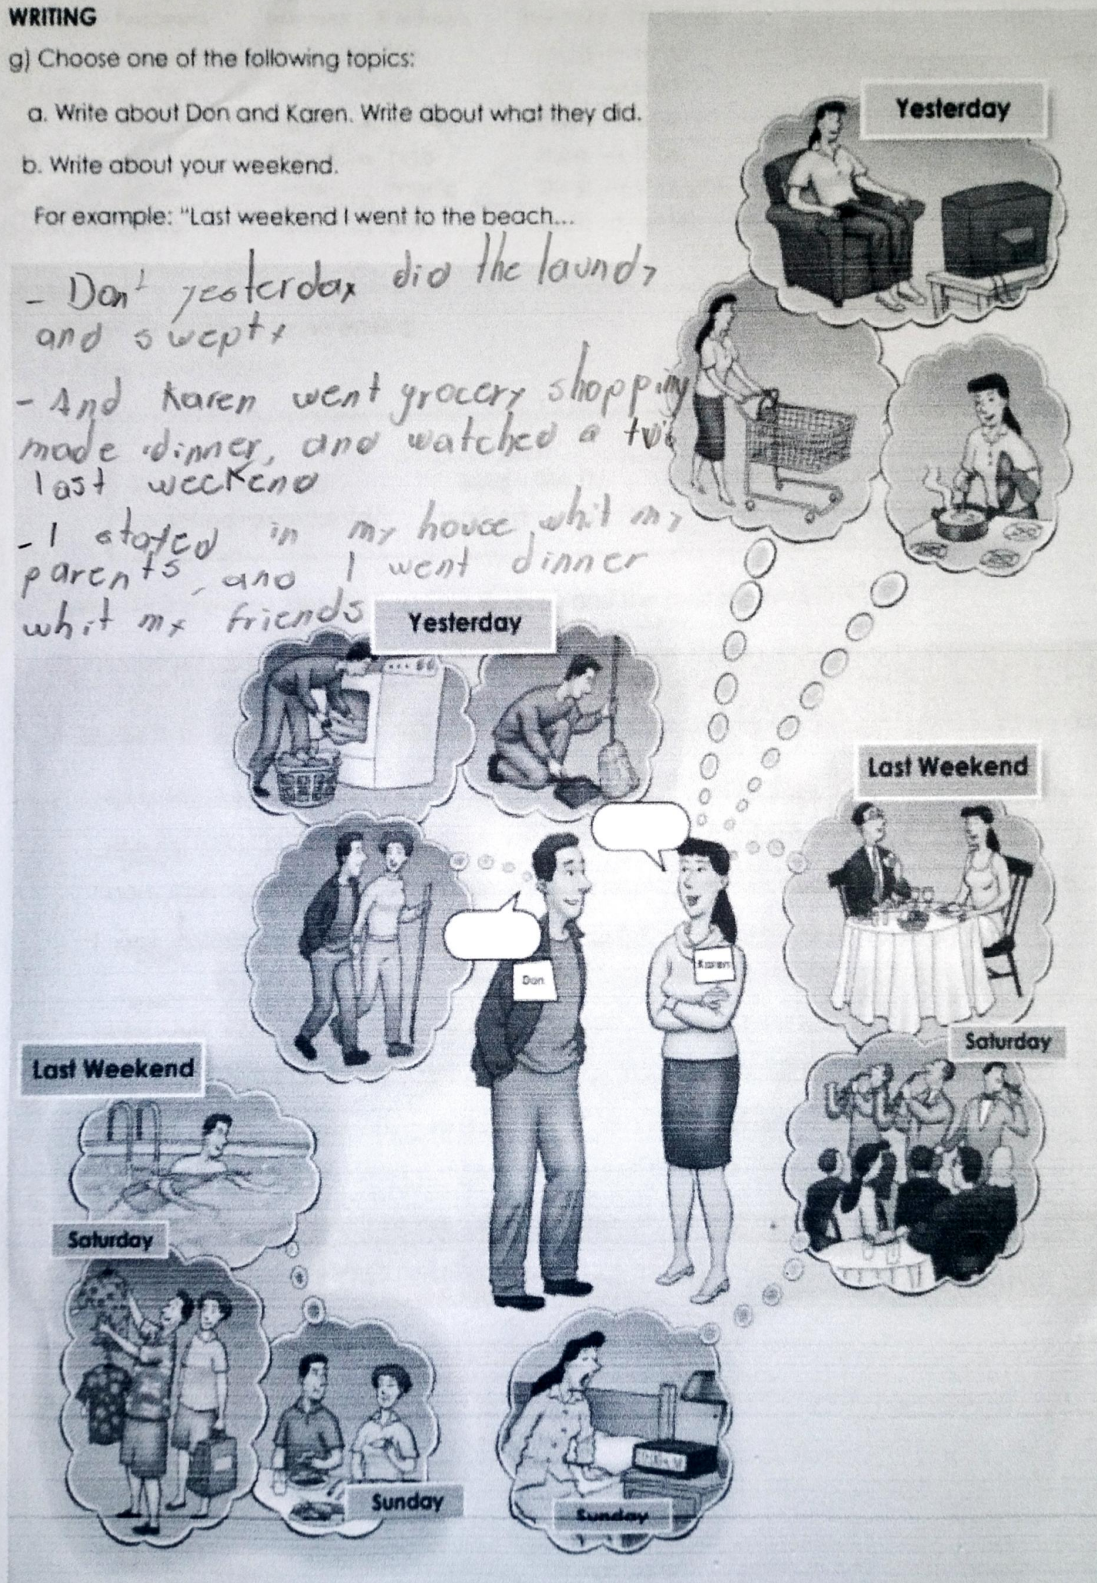 WRITING
g) Choose one of the following topics:
a. Write about Don and Karen. Write about what they did.
b. Write about your weekend.
For example: "Last weekend I went to the beach...
- Don yesterday did the laundy
and swept
- And Karen went grocery shopping
made dinner, and watched a
last weekend
- I stayed in my house whit my
parents, and I went dinner
whit my friends
Yesterday
Yesterday
Last Weekend
Don
Karen
Saturday
Last Weekend
Saturday
Sunday
Sunday